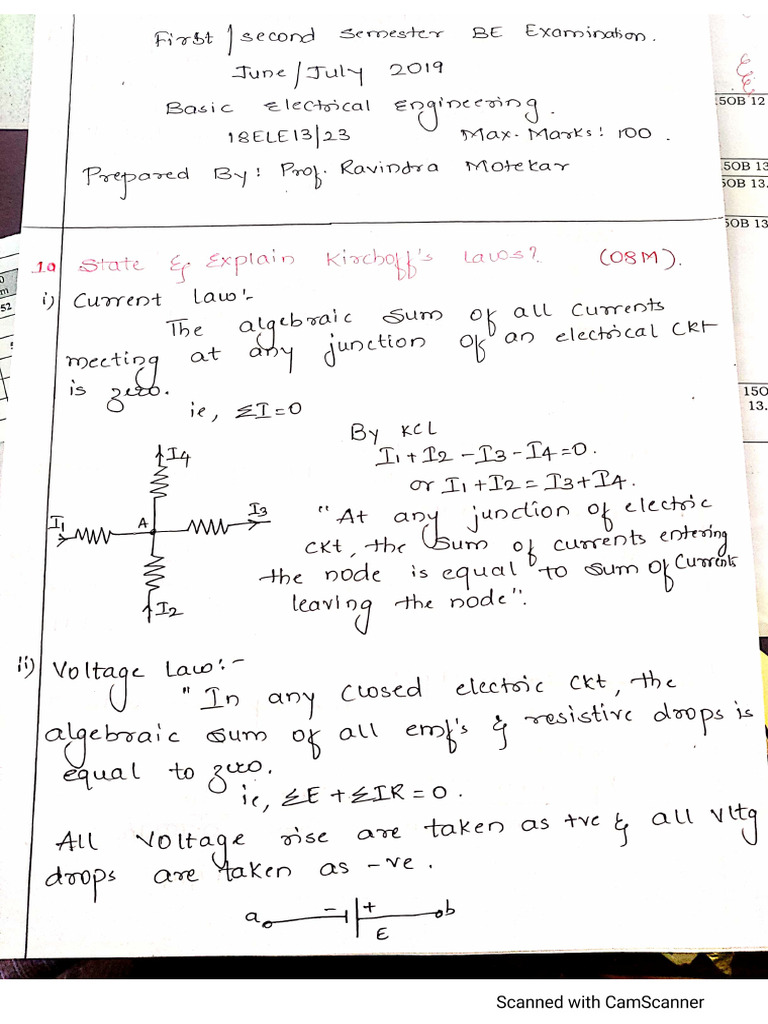 First/second semester BE Examination.
June/July 2019
Basic Electrical Engineering.
18ELE13/23 Max. Marks: 100.
Prepared By: Prof. Ravindra Motekar
50B 12
50B 13
50B 13.
50B 13
150
13.
52
m
1a State & Explain Kirchoff's Laws? (08M).
i) Current law:-
The algebraic sum of all currents
meeting at any junction of an electrical ckt
is zero.
ie, ΣI=0
By KCL
I1+I2-I3-I4=0.
or I1+I2=I3+I4.
I4
I1
A
I3
I2
"At any junction of electric
ckt, the sum of currents entering
the node is equal to sum of currents
leaving the node".
ii) Voltage Law:-
"In any closed electric ckt, the
algebraic sum of all emf's & resistive drops is
equal to zero.
ie, ΣE+ΣIR=0.
All voltage rise are taken as +ve & all vltg
drops are taken as -ve.
a - + b
E
Scanned with CamScanner